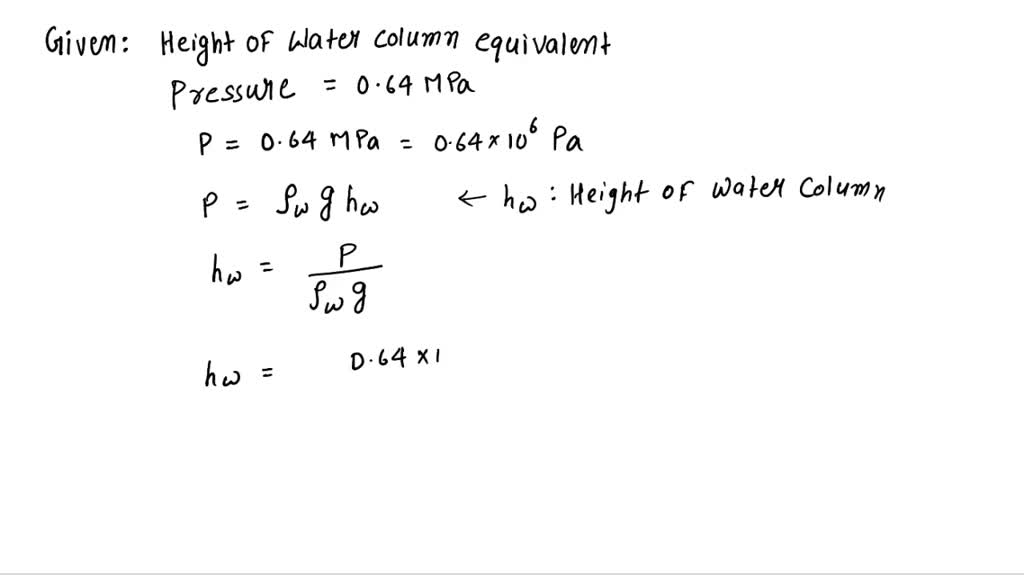 Given: Height of Water Column equivalent
Pressure = 0.64 MPa
P = 0.64 MPa = 0.64 × 10⁶ Pa
P = ρw g hw ← hw : Height of Water Column
hw = P / ρw g
hw = 0.64 × 1